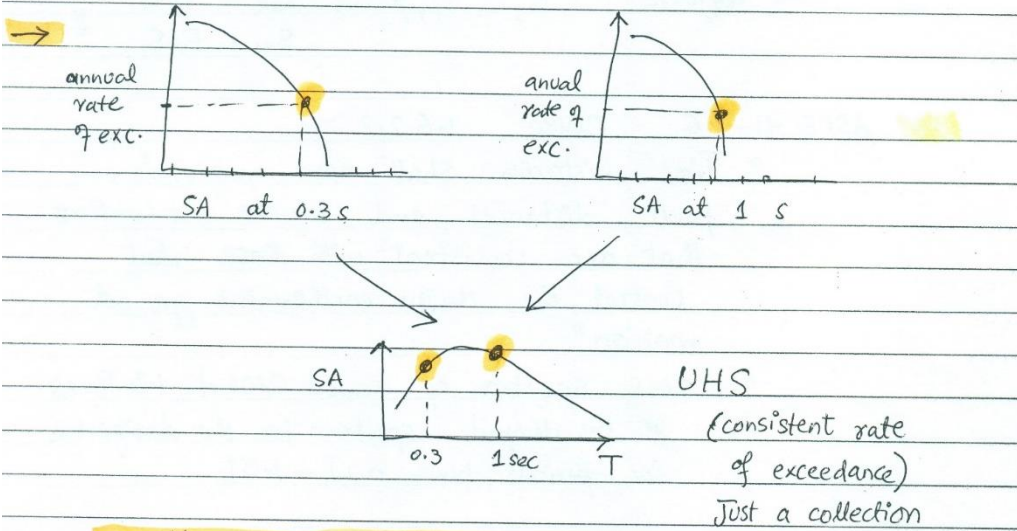 annual
rate
of exc.
SA at 0.3 s
anual
rate of
exc.
SA at 1 s
SA
0.3
1 sec
T
UHS
(consistent rate
of exceedance)
Just a collection